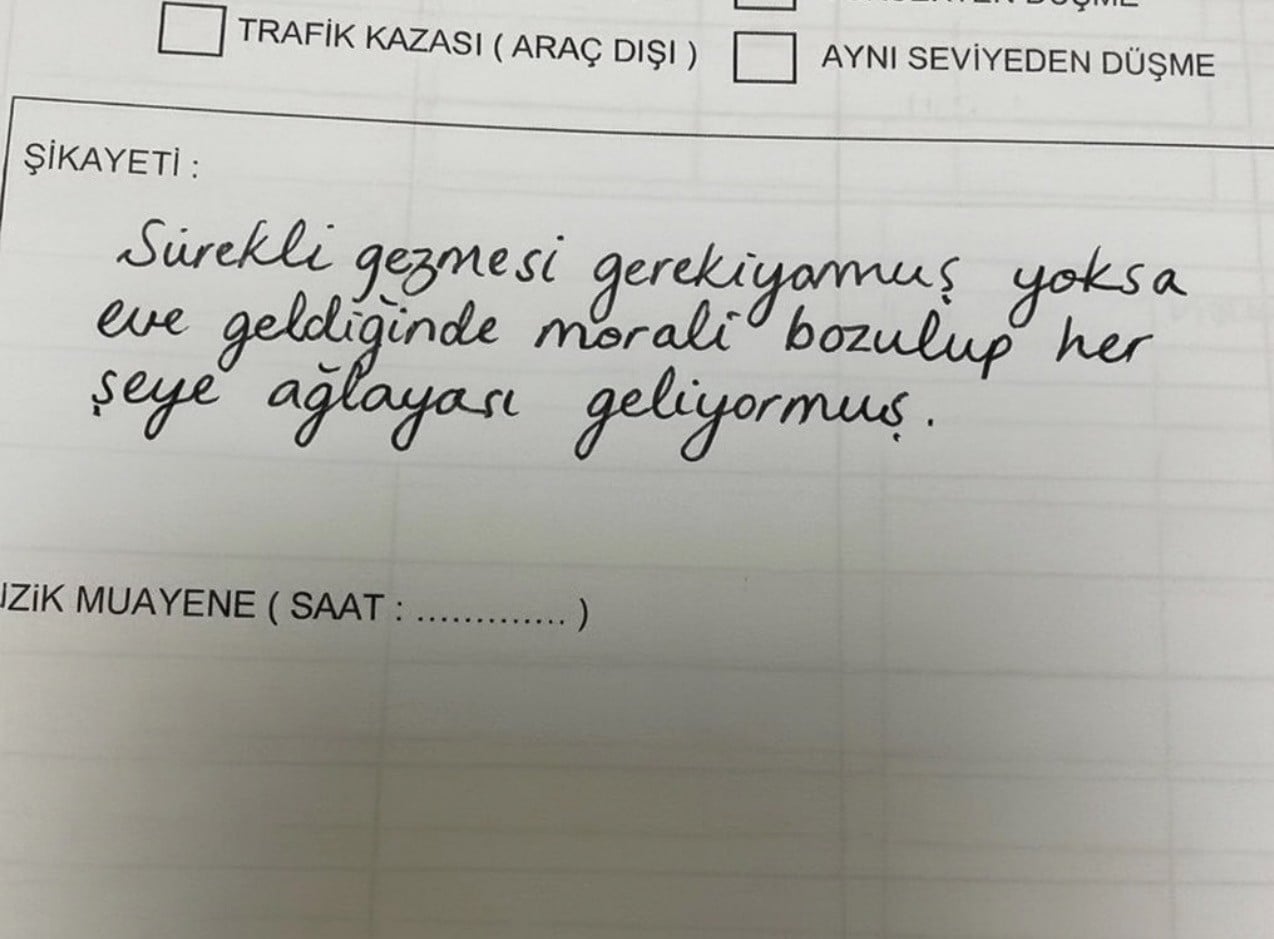 TRAFİK KAZASI ( ARAÇ DIŞI )
AYNI SEVİYEDEN DÜŞME
ŞİKAYETİ :
Sürekli gezmesi gerekiyomuş yoksa
eve geldiğinde morali bozulup her
şeye ağlayası geliyormuş.
MUAYENE ( SAAT : ............. )